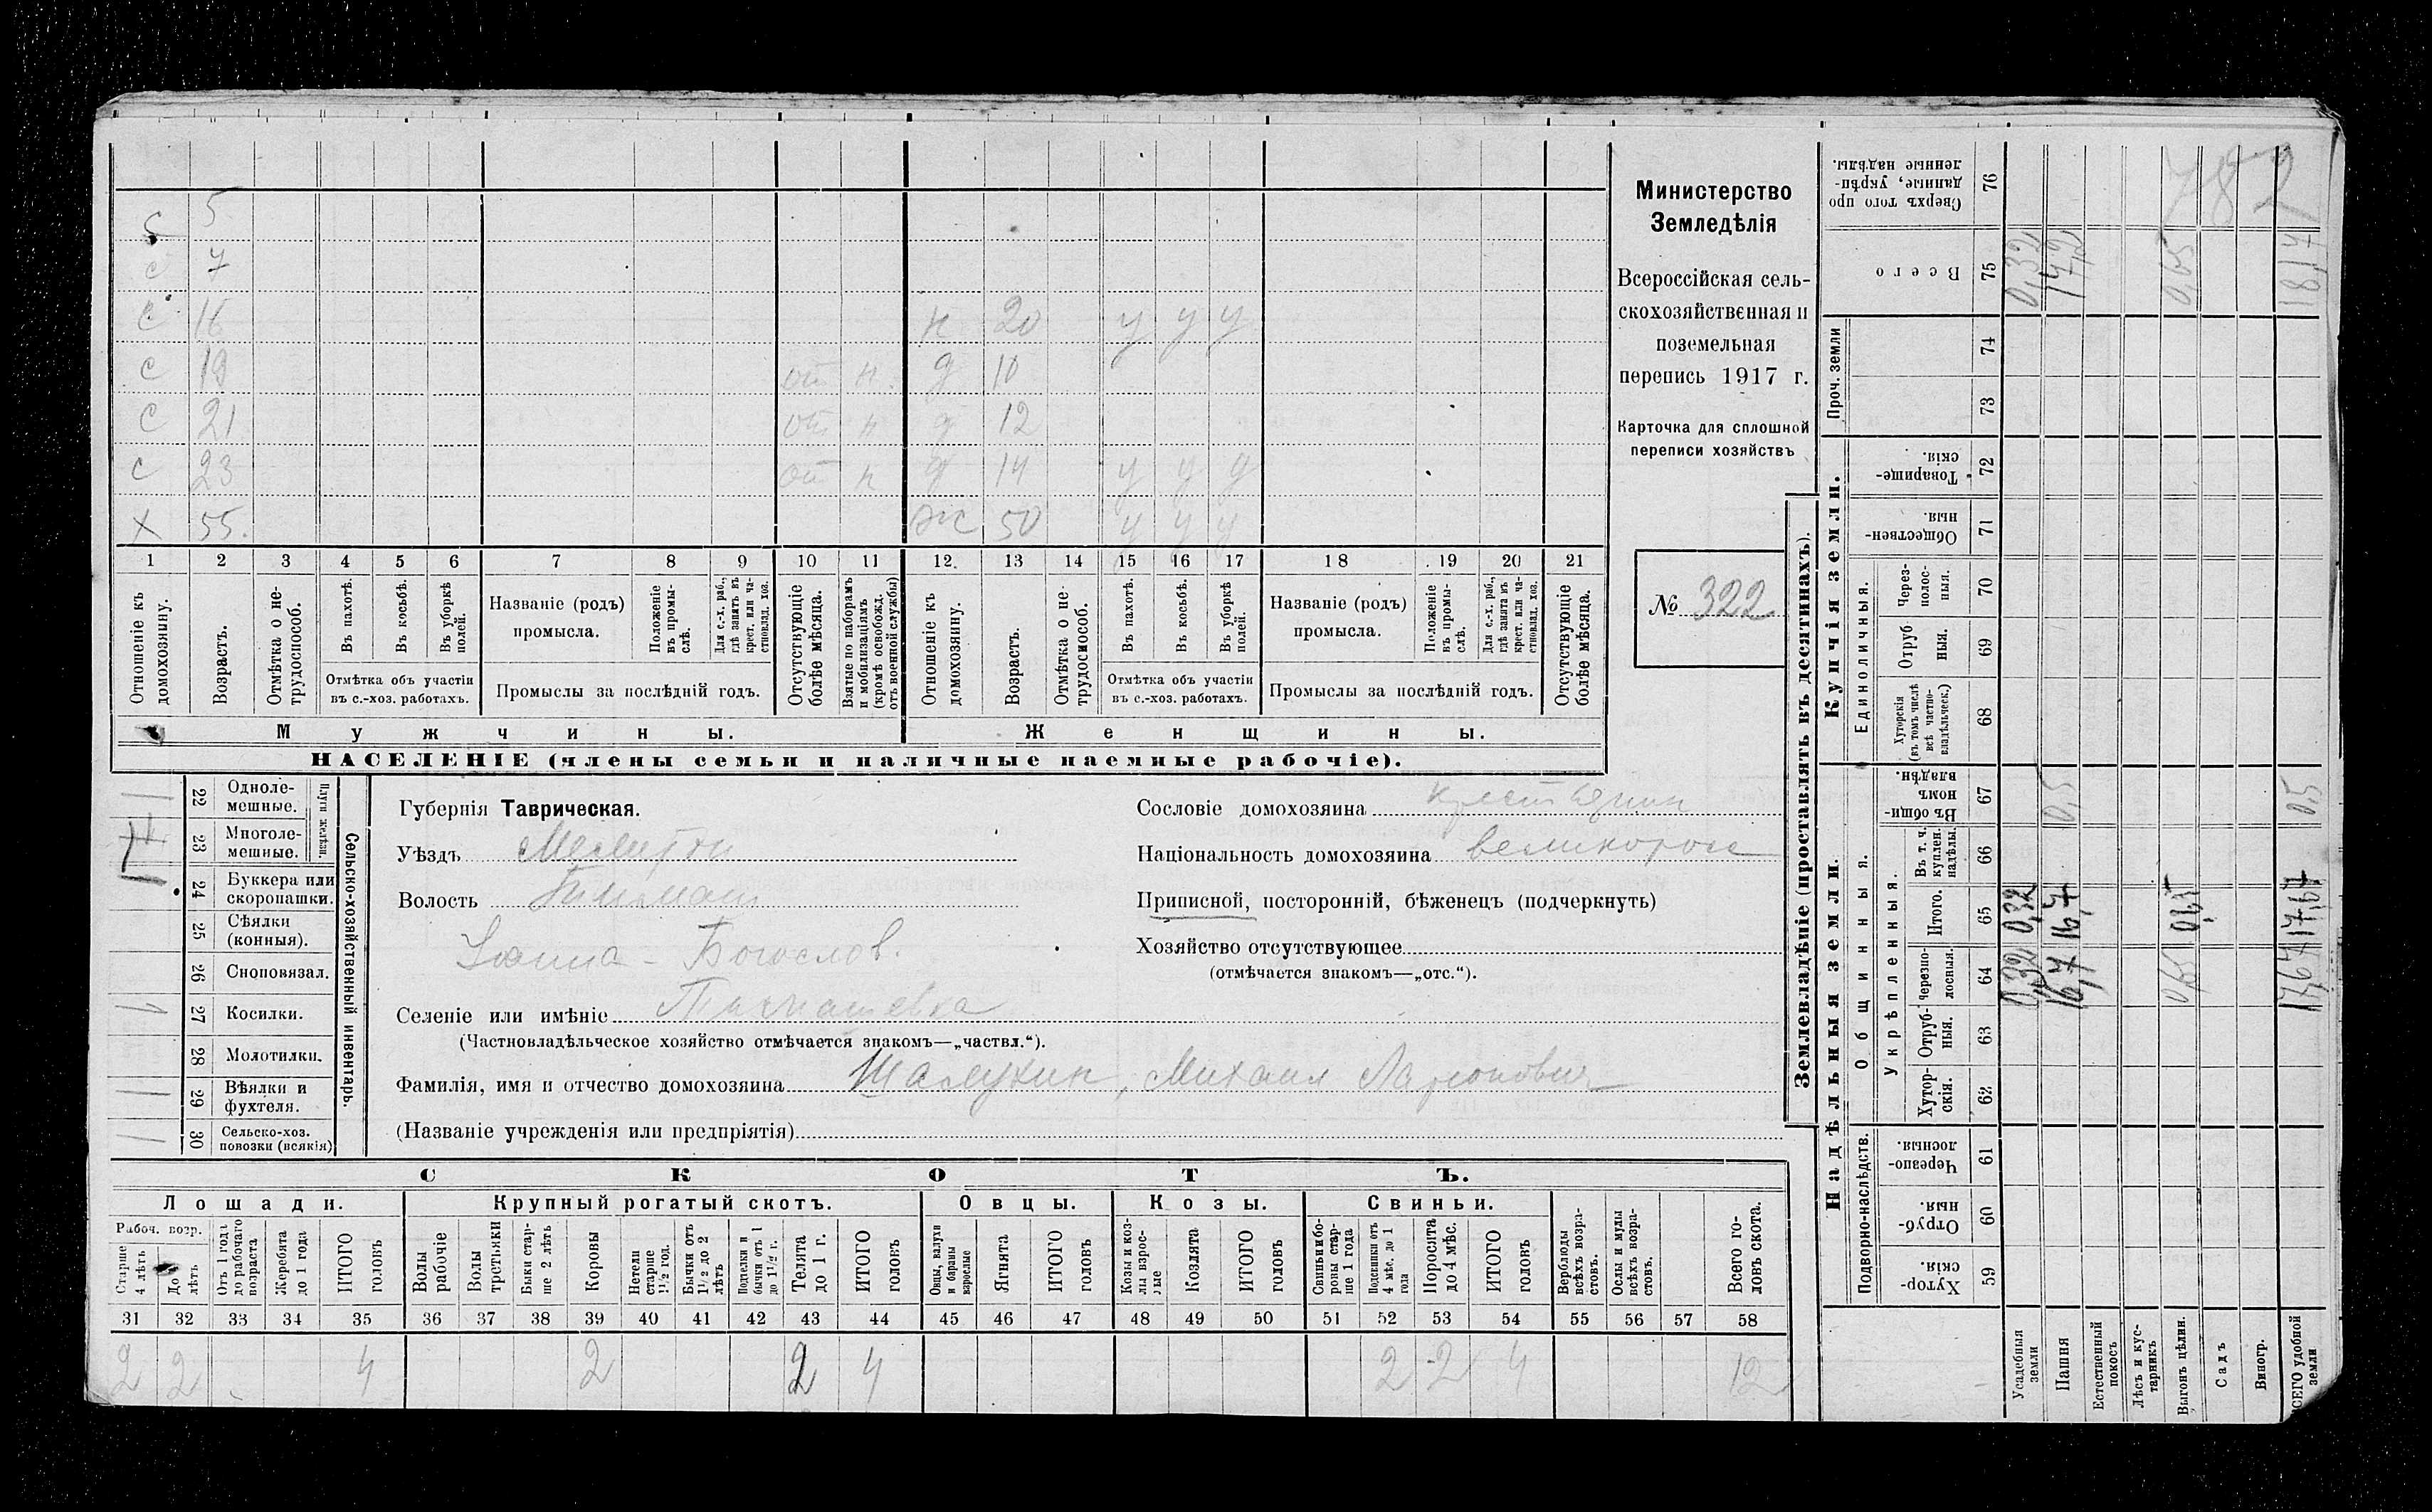 с 5
с 7
с 16 н 20 у у у
с 19 от н. д 10
с 21 от н д 12
с 23 от н д 14 у у у
х 55. ж 50 у у у
1 2 3 4 5 6 7 8 9 10 11 12. 13 14 15 16 17 18 19 20 21
Отношеніе къ домохозяину.
Возрастъ.
Отмѣтка о не-
трудоспособ.
Въ пахотѣ.
Въ косьбѣ.
Въ уборкѣ
полей.
Отмѣтка объ участіи
въ с.-хоз. работахъ.
Названіе (родъ)
промысла.
Положеніе
въ промы-
слѣ.
Для с.-х. раб.,
гдѣ занятъ въ
крест. или ча-
стновлад. хоз.
Промыслы за послѣдній годъ.
Отсутствующіе
болѣе мѣсяца.
Взятые по наборамъ
и мобилизаціямъ
(кромѣ освобожд.
отъ военной службы)
Отношеніе къ
домохозяину.
Возрастъ.
Отмѣтка о не-
трудоспособ.
Въ пахотѣ.
Въ косьбѣ.
Въ уборкѣ
полей.
Отмѣтка объ участіи
въ с.-хоз. работахъ.
Названіе (родъ)
промысла.
Положеніе
въ промы-
слѣ.
Для с.-х. раб.,
гдѣ занята въ
крест. или ча-
стновлад. хоз.
Промыслы за послѣдній годъ.
Отсутствующіе
болѣе мѣсяца.
Мужчины.
Женщины.
НАСЕЛЕНІЕ (члены семьи и наличные наемные рабочіе).
Министерство
Земледѣлія
Всероссійская сель-
скохозяйственная и
поземельная
перепись 1917 г.
Карточка для сплошной
переписи хозяйствъ
№ 322
22 Одноле-
мешные.
23 Многоле-
мешные.
Плуги желѣзн.
24 Буккера или
скоропашки.
25 Сѣялки
(конныя).
26 Сноповязал.
27 Косилки.
28 Молотилки.
29 Вѣялки и
фухтеля.
30 Сельско-хоз.
повозки (всякія)
Сельско-хозяйственный инвентарь.
Губернія Таврическая.
Уѣздъ Мелитоп
Волость Тихмат
Іоанна-Богослов.
Селеніе или имѣніе
(Частновладѣльческое хозяйство отмѣчается знакомъ—„частвл.“).
Фамилія, имя и отчество домохозяина Шалухин, Михаил Ларионович
(Названіе учрежденія или предпріятія)
Сословіе домохозяина крестьянин
Національность домохозяина великорос
Приписной, посторонній, бѣженецъ (подчеркнуть)
Хозяйство отсутствующее
(отмѣчается знакомъ—„отс.“).
СКОТЪ.
Лошади. Крупный рогатый скотъ. Овцы. Козы. Свиньи.
Рабоч. возр.
Старше
4 лѣтъ
До 4
лѣтъ
Отъ 1 года
до рабочаго
возраста
Жеребята
до 1 года
ИТОГО
головъ
Волы
рабочіе
Волы
третьяки
Быки стар-
ше 2 лѣтъ
Коровы
Нетели
старше
1½ год.
Бычки отъ
1½ до 2
лѣтъ
Подтелки и
бычки отъ 1
до 1½ г.
Телята
до 1 г.
ИТОГО
головъ
Овцы, валухи
и бараны
взрослые
Ягнята
ИТОГО
головъ
Козы и коз-
лы взрос-
лые
Козлята
ИТОГО
головъ
Свиньи и бо-
ровы стар-
ше 1 года
Подсвинки отъ
4 мѣс. до 1
года
Поросята
до 4 мѣс.
ИТОГО
головъ
Верблюды
всѣхъ возра-
стовъ.
Ослы и мулы
всѣхъ возра-
стовъ.
Всего го-
ловъ скота.
31 32 33 34 35 36 37 38 39 40 41 42 43 44 45 46 47 48 49 50 51 52 53 54 55 56 57 58
2 2 4 2 2 4 2 2 4 12
Землевладѣніе (проставлять въ десятинахъ).
Надѣльныя земли.
Купчія земли.
Проч. земли
Подворно-наслѣдств.
Общинныя.
Укрѣпленныя.
Единоличныя.
Сверхъ того про
данные, укрѣп-
ленные надѣлы.
76
Всего
75
74
73
Товарище-
скія.
72
Обществен-
ныя.
71
Через-
полос-
ныя.
70
Отруб
ныя.
69
Хуторскія
(въ томъ числѣ
всѣ частно-
владѣльческ.)
68
Въ общи-
номъ
владѣн.
67
Въ т. ч.
куплен.
надѣлы.
66
Итого.
65
Черезпо-
лосныя.
64
Отруб-
ныя.
63
Хутор-
скія.
62
Черезпо-
лосныя.
61
Отруб-
ныя.
60
Хутор-
скія.
59
Усадебныя
земли
0,32 0,32 0,32
Пашня
16,7 16,7 0,5 17,2
Естественный
покосъ
Лѣсъ и кус-
тарникъ
Выгонъ цѣлин.
0,65 0,65 0,65
Садъ
Виногр.
ВСЕГО удобной
земли
17,67 17,67 0,5 18,17